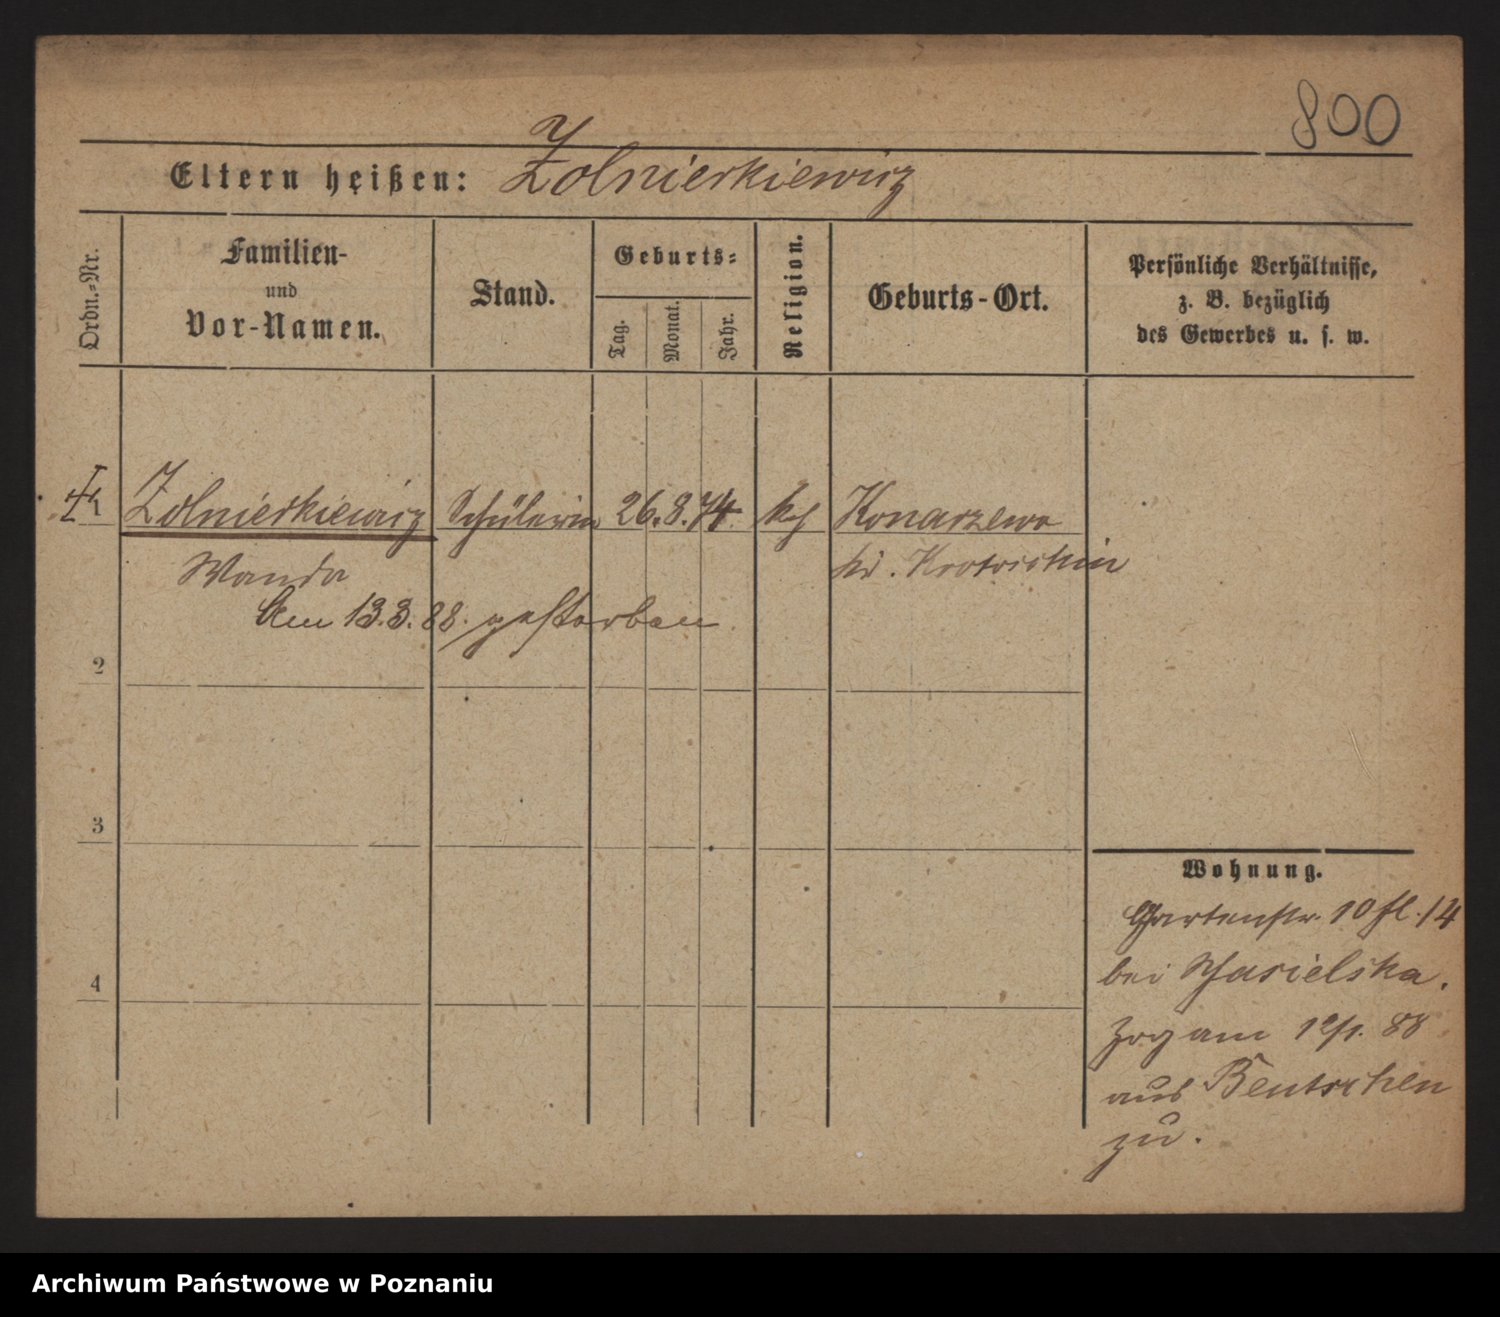 800
Eltern heißen: Żolnierkiewicz
Ordn.-Nr.
Familien-
und
Vor-Namen.
Stand.
Geburts-
Tag.
Monat.
Jahr.
Religion.
Geburts-Ort.
Persönliche Verhältnisse,
z. B. bezüglich
des Gewerbes u. s. w.
1 Żolnierkiewicz Schülerin 26. 8. 74. kth Konarzewo
Wanda kr. Krotoschin
Am 13.3.88. gestorben.
2
3
4
Wohnung.
Gartenstr. 10 fl. 14
bei
Zog am 88
aus Bentschen
zu.
Archiwum Państwowe w Poznaniu